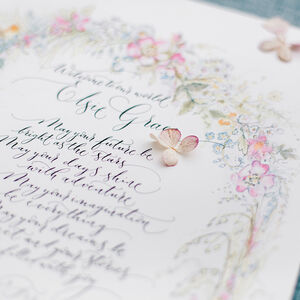 Welcome to our world
Elsie Grace
May your future be
bright as the stars
May your days shine
with adventure
May your imagination
be everything
May your dreams be
and your